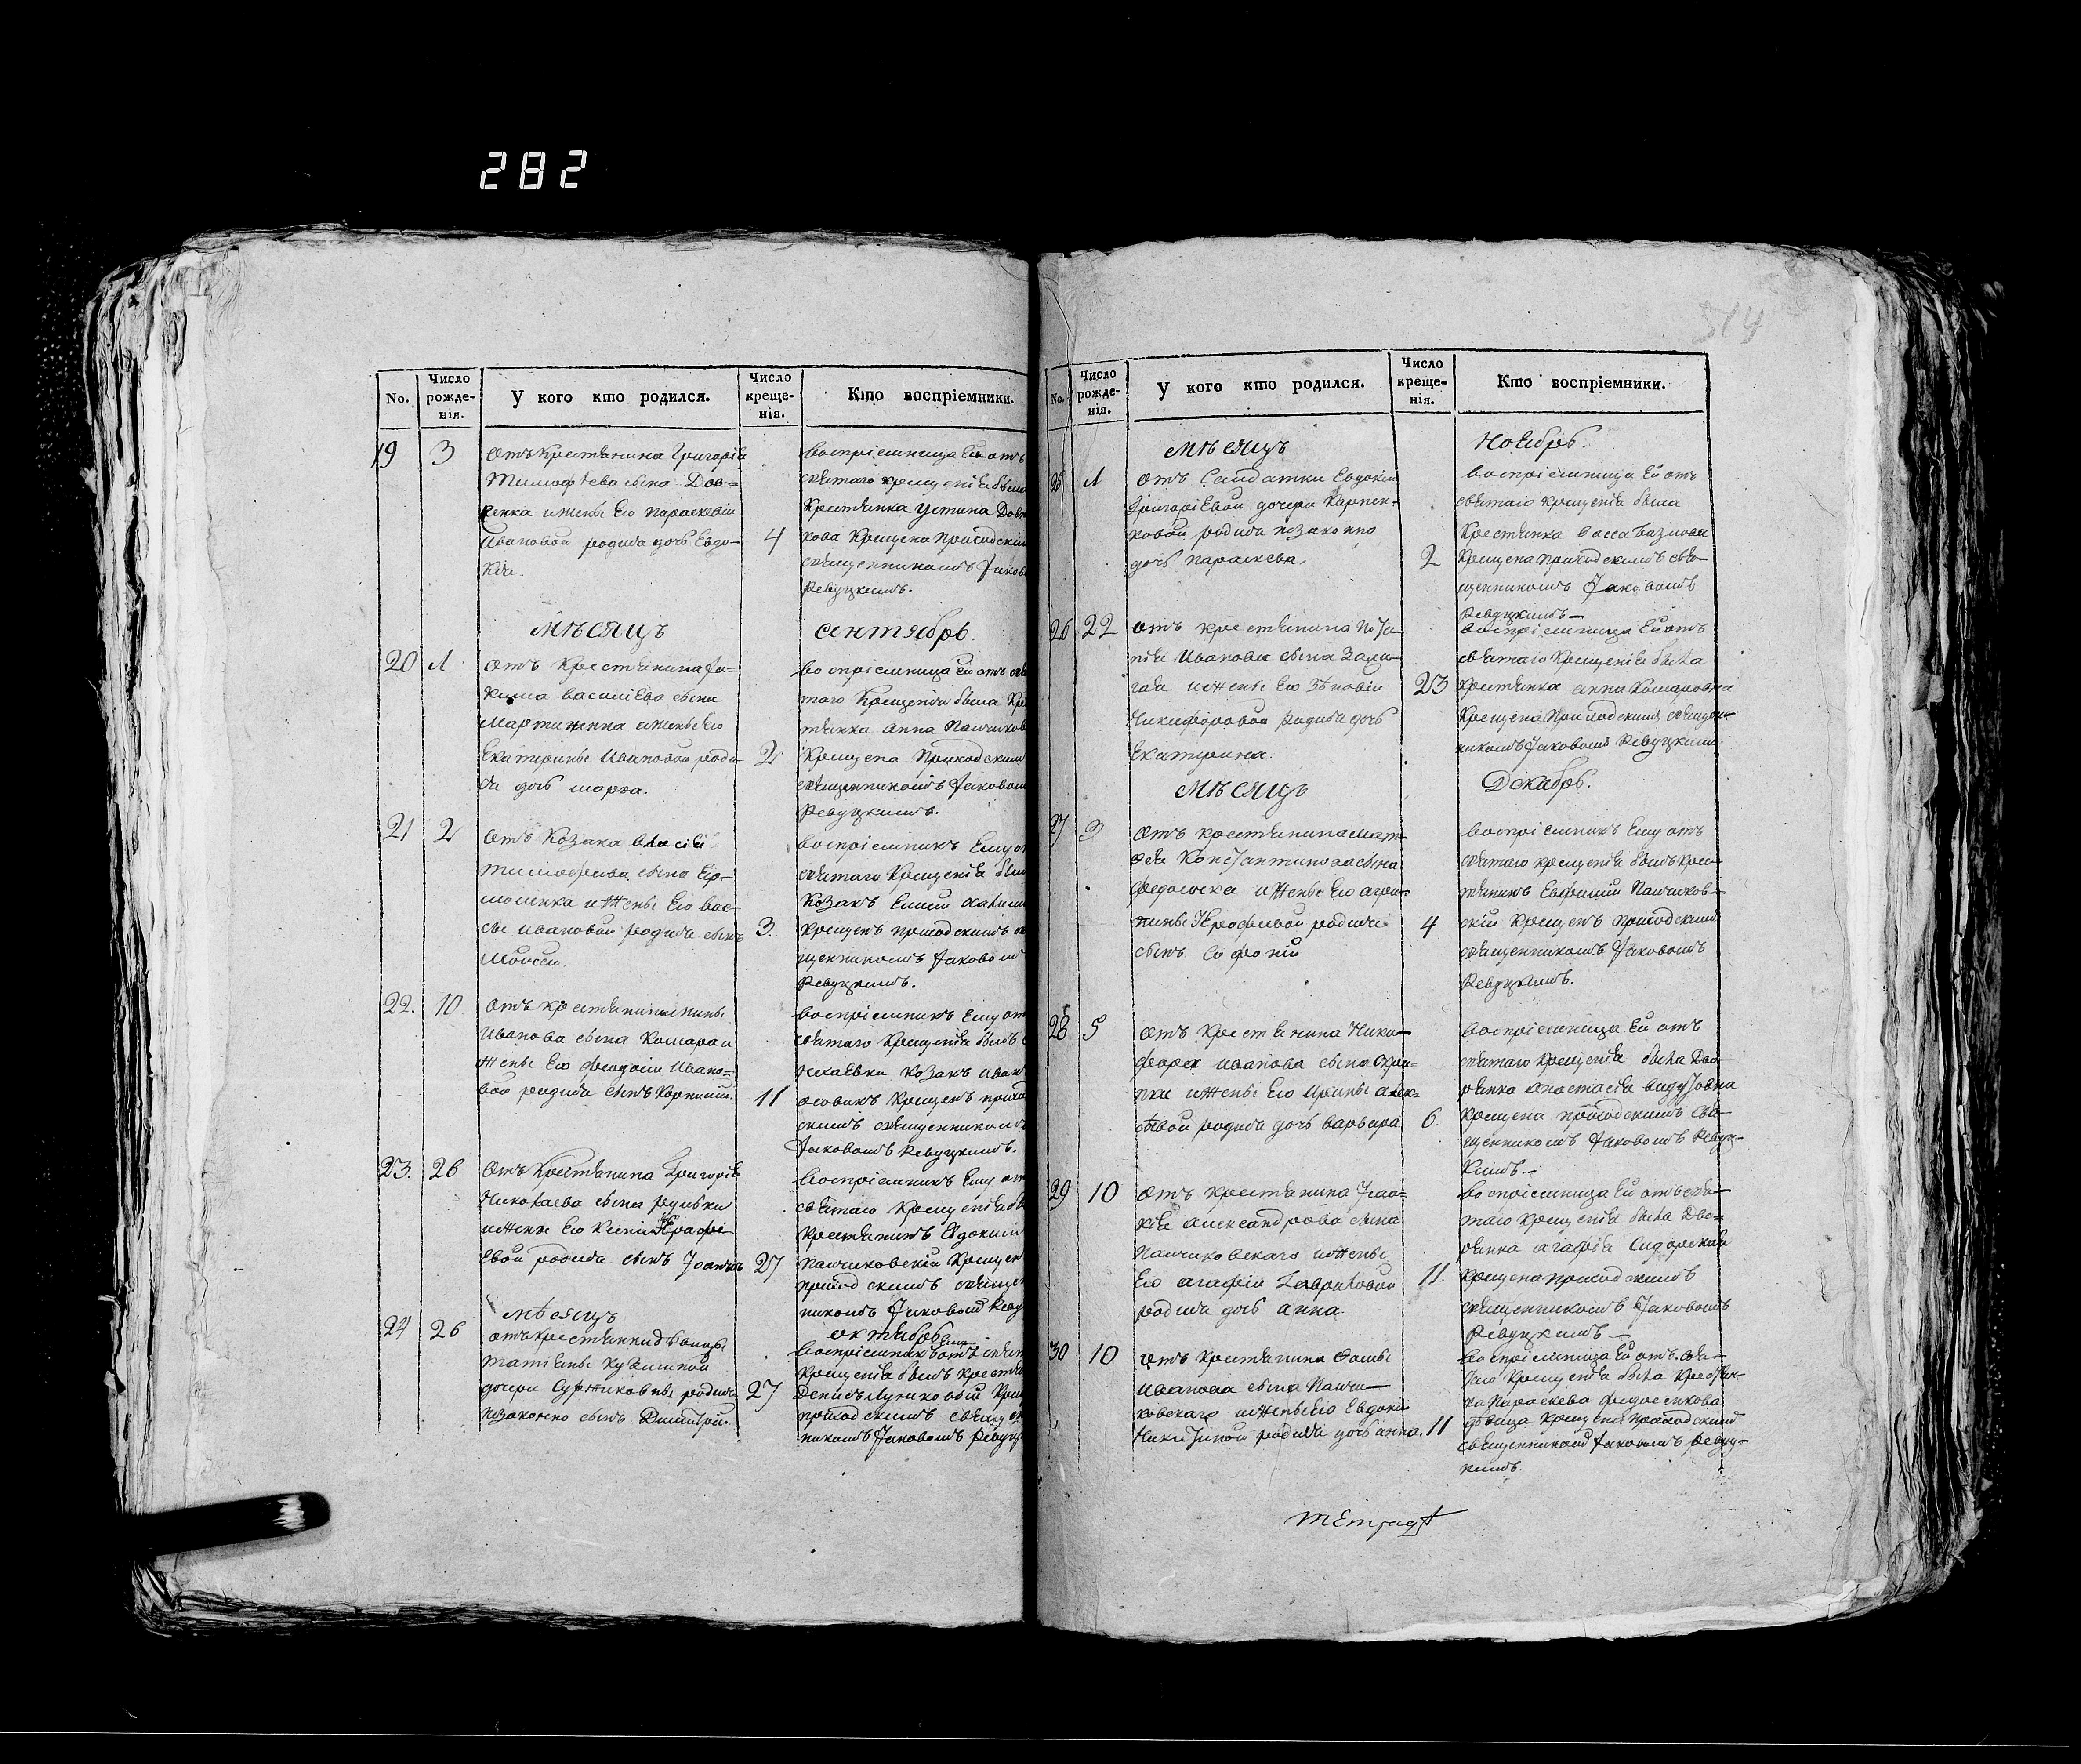 282
514
No.
Число рожде-нія.
У кого кто родился.
Число креще-нія.
Кто воспріемники.
19 3
отъ крестянина Григорія
Тимофѣева сына Дов=
женка и жены его Параскевіи
Ивановой родися дочь Евдо-
кія.
4
воспріемница ей отъ
святаго крещенія была
крестянка Устина
кова крещена приходскимъ
священникомъ Іаково
Ревуцкимъ.
мѣсяцъ сентябрь.
20 1
отъ крестянина Іа-
кима Василіева сына
и жены его
Екатерины Ивановой роди-
ся дочь Марѳа.
2
воспріемница ей отъ свя
таго крещенія была кре
тянка Анна Панчиков
крещена приходским
священникомъ Іаковом
Ревуцкимъ.
21 2
отъ козака Власія
Тимофеева сына Ер-
моленка и жены его Вас-
сы Ивановой родися сынъ
Моисей.
3.
воспріемникъ ему от
святаго крещенія был
козакъ
крещенъ приходскимъ св
щенникомъ Іаковом
Ревуцкимъ.
22. 10
отъ крестянина
Иванова сына Комара и
жены его Феодосіи Ивано=
вой родися сынъ Корнилій.
11
воспріемникъ ему от
святаго крещенія былъ
козакъ Иван
крещенъ прихо
скимъ священникомъ
Іаковомъ Ревуцкимъ.
23. 26
отъ крестянина Григорія
Николаева сына
и жены его Ксеніи
евой родися сынъ Іоанна
27
воспріемникъ ему от
святаго крещенія бы
крестянинъ Евдоким
Панчиковскій крещен
приходскимъ священ
никомъ Іаковом Реву
мѣсяцъ октябрь
24 26
отъ крестянки дѣвицы
Татіаны Кузминой
дочери родися
незаконно сынъ Димитрій.
27
воспріемникъ ему отъ свят
крещенія былъ крестя
Денисъ кре
приходскимъ священ
никомъ Іаковомъ Ревуц
No.
Число рожде-нія.
У кого кто родился.
Число креще-нія.
Кто воспріемники.
мѣсяцъ Ноябрь.
25 1
отъ Салдатки Евдокіи
Григоріевой дочери Карпен-
ковой родися незаконно
дочь Параскева.
2
воспріемница ей отъ
святаго крещенія была
крестянка Васса
крещена приходскимъ свя-
щенникомъ Іаковомъ
Ревуцкимъ—
26 22
отъ крестянина
Иванова сына
и жены его Зѣновіи
Никифоровой родися дочь
Екатерина.
23
воспріемница ей отъ
святаго крещенія была
крестянка Анна Комаровна
крещена приходскимъ священ-
никомъ Іаковомъ Ревуцкимъ
мѣсяцъ Декабрь.
27 3
отъ крестянина Мат-
ѳея Константинова сына
Федосенка и жены его Агри-
пины родися
сынъ Софоній
4
воспріемникъ ему отъ
святаго крещенія былъ крес-
тянинъ Евфимій Панчиков-
скій крещенъ приходскимъ
священникомъ Іаковомъ
Ревуцкимъ.
28 5
отъ крестянина Ники-
фора Иванова сына Скри-
пки и жены его Ирины Алек-
сѣевой родися дочь Варвара
6.
воспріемница ей отъ
святаго крещенія была Дво-
рянка Анастасія
крещена приходскимъ свя-
щенникомъ Іаковомъ Ревуц-
кимъ.—
29 10
отъ крестянина Іоан-
кія Александрова сына
Панчиковскаго и жены
его Агафіи Гавриловой
родися дочь Анна.
11.
воспріемница ей отъ свя-
таго крещенія была Дво=
рянка Агафія Сидорская
крещена приходскимъ
священникомъ Іаковомъ
Ревуцкимъ—
30 10
отъ крестянина Ѳомы
Иванова сына Панчи-
ковскаго и жены его Евдокіи
Никитиной родися дочь Анна.
11
воспріемница ей отъ свя-
таго крещенія была крестян-
ка Параскева Федосенкова
дѣвица крещена приходскимъ
священникомъ Іаковомъ Ревуц-
кимъ.